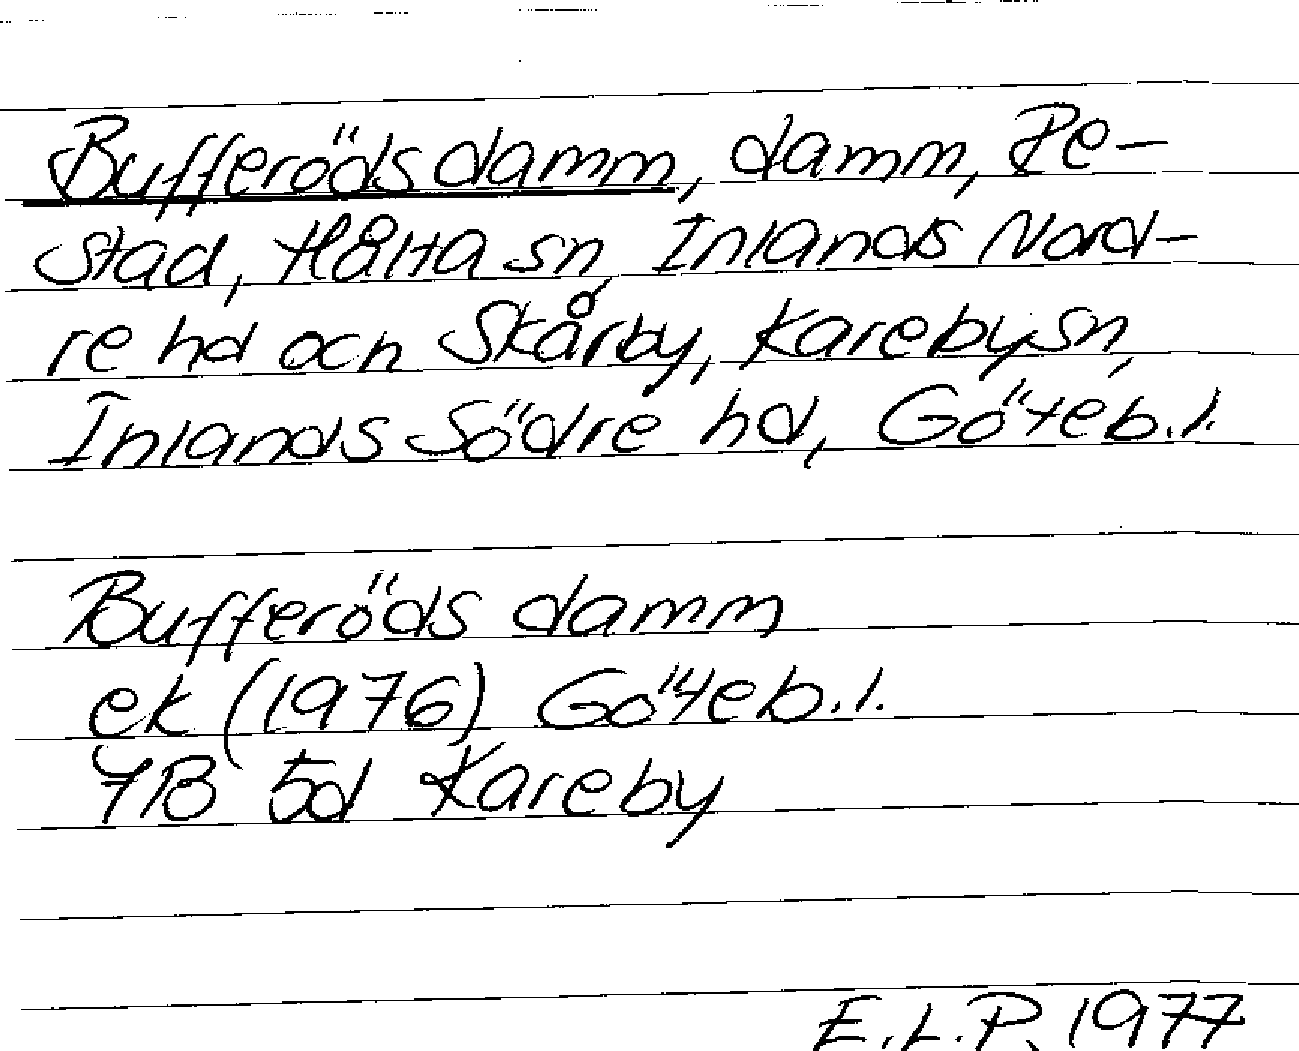 Bufferöds damm, damm, Re-
stad, Hålta sn, Inlands Nord-
re hd och Skårby, Kareby sn,
Inlands Södre hd, Göteb. l.
Bufferöds damm
ek (1976) Göteb. l.
7B 5d Kareby
E.L.P. 1977